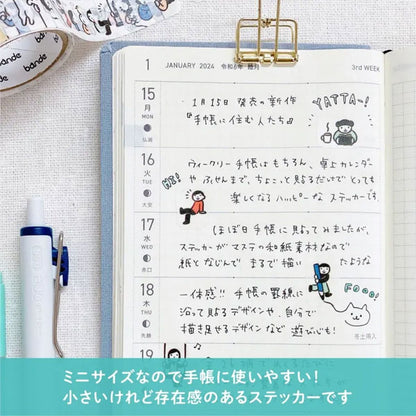 bande
bande
1 JANUARY 2024 令和6年 睦月
3rd WEEK
15
月
MON
仏滅
1月15日 発売の新作
『手帳に住む人たち』
YATTA~!
16
火
TUE
大安
HI!
ウィークリー手帳はもちろん、卓上カレンダー
や ふせんまで、ちょこっと貼るだけで とっても
楽しくなる ハッピーな ステッカーです
17
水
WED
赤口
ほぼ日手帳に貼ってみましたが、
ステッカーが マステの和紙素材なので
紙となじんで まるで描い たような
18
木
THU
先勝
一体感!! 手帳の罫線に
沿って貼るデザインや、自分で
描き足せるデザインなど 遊び心も!
FOOO!
冬土用入
19
ミニサイズなので手帳に使いやすい!
小さいけれど存在感のあるステッカーです